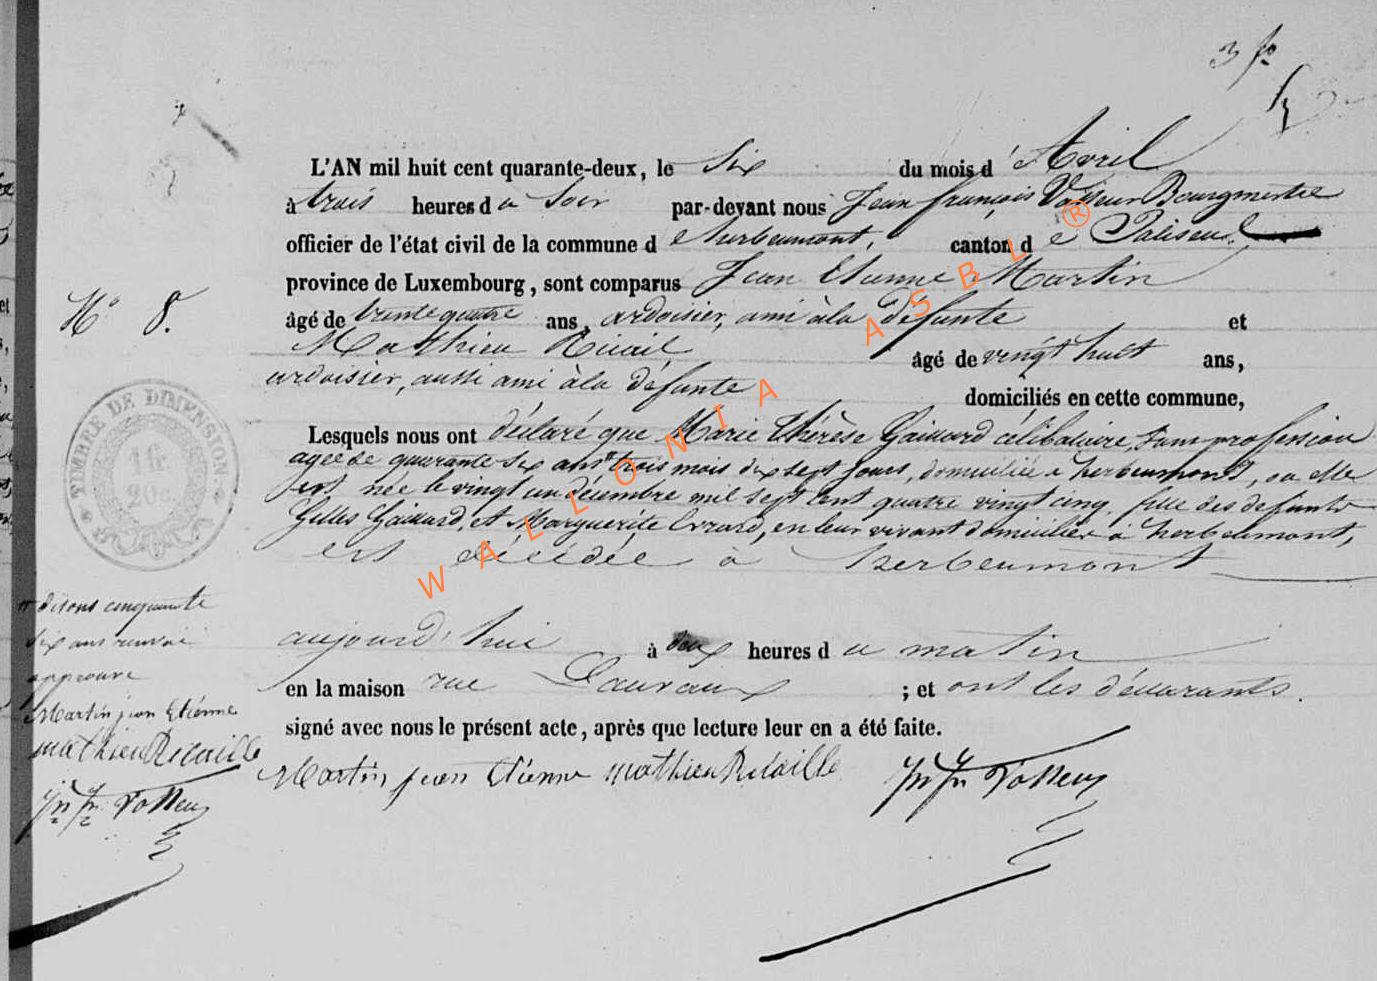 3 fo
L'AN mil huit cent quarante-deux, le six du mois d'Avril
à trois heures du Soir par-devant nous Jean françois Vasseur Bourgmestre
officier de l'état civil de la commune de herbeumont, canton de Paliseul,
province de Luxembourg, sont comparus Jean Etienne Martin
N° 8.
âgé de trente quatre ans, ardoisier, ami à la défunte et
Mathieu Ricail âgé de vingt huit ans,
ardoisier, aussi ami à la défunte domiciliés en cette commune,
Lesquels nous ont déclaré que Marie Thérèse Gaillard célibataire, sans profession
agée de quarante six ans trois mois dix sept jours, domiciliée à herbeumont, où elle
est née le vingt un décembre mil sept cent quatre vingt cinq, fille des defunts
Gilles Gaillard, et Marguerite Evrard, en leur vivant domiciliés à herbeumont,
est décédée à herbeumont
aujourd'hui à deux heures du matin
en la maison rue Lauvaux ; et ont les déclarants
signé avec nous le présent acte, après que lecture leur en a été faite.
Martin jean Etienne mathieu Ricaille Jn fr Vasseur
TIMBRE DE DIMENSION
1 fr
20 c.
disons cinquante
six ans renvoi
approuvé
Martin jean Etienne
mathieu Ricaille
Jn fr Vasseur
WALLONIA ASBL ®